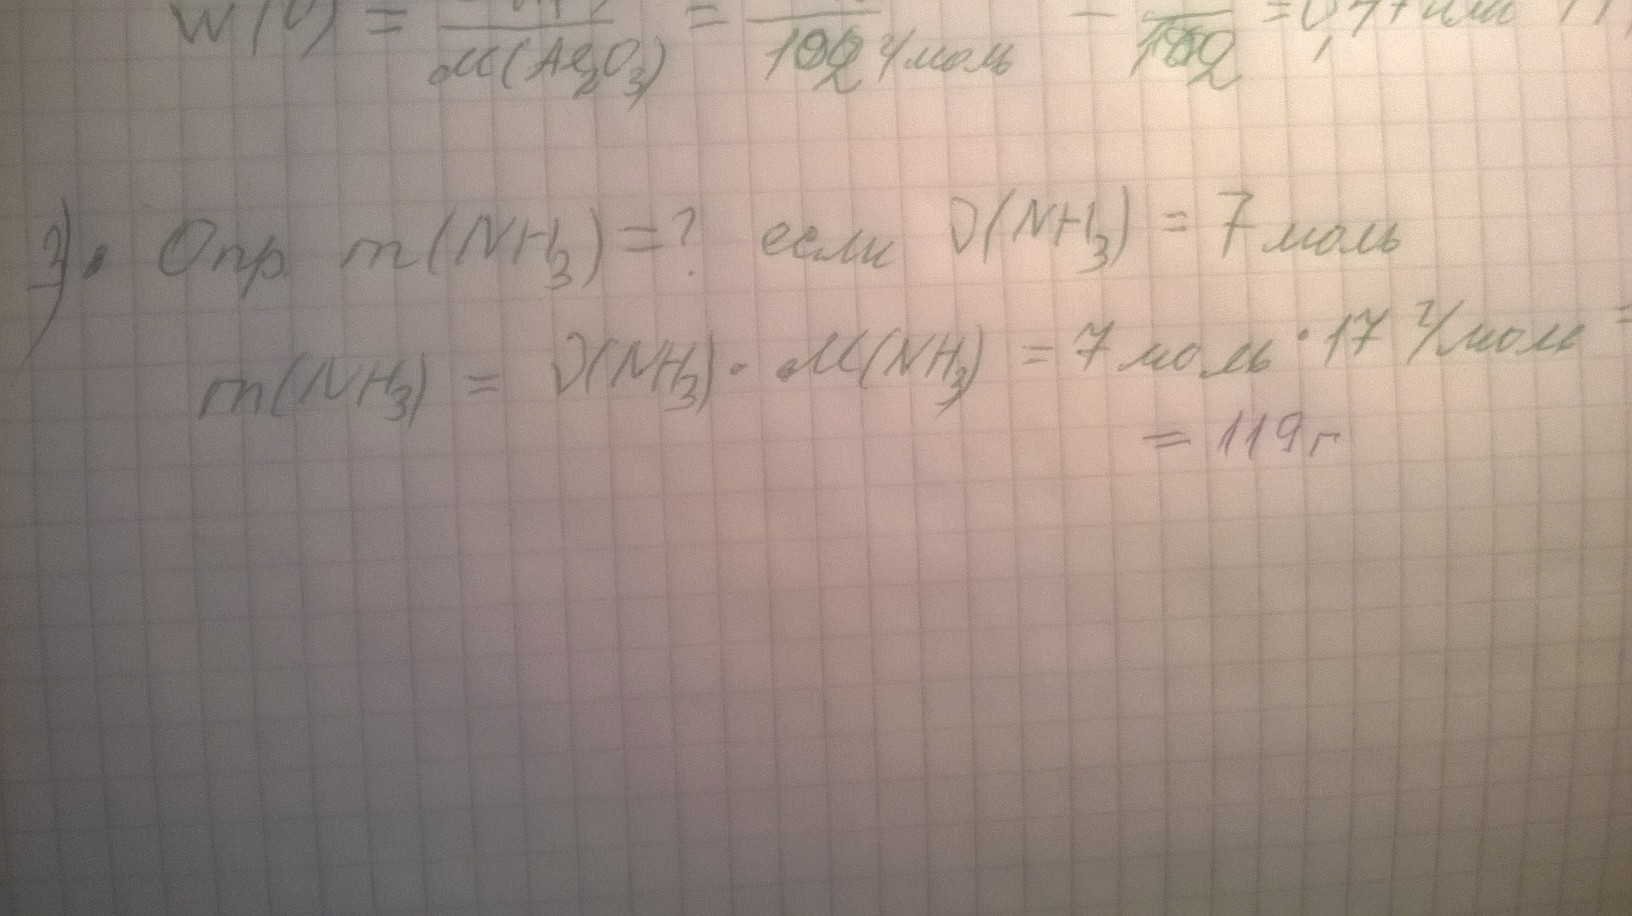 W(O) = M(Al2O3) = 102 г/моль = 102 = 0, или
3). Опр m(NH3)=? если ν(NH3) = 7 моль
m(NH3) = ν(NH3) · M(NH3) = 7 моль · 17 г/моль =
= 119 г